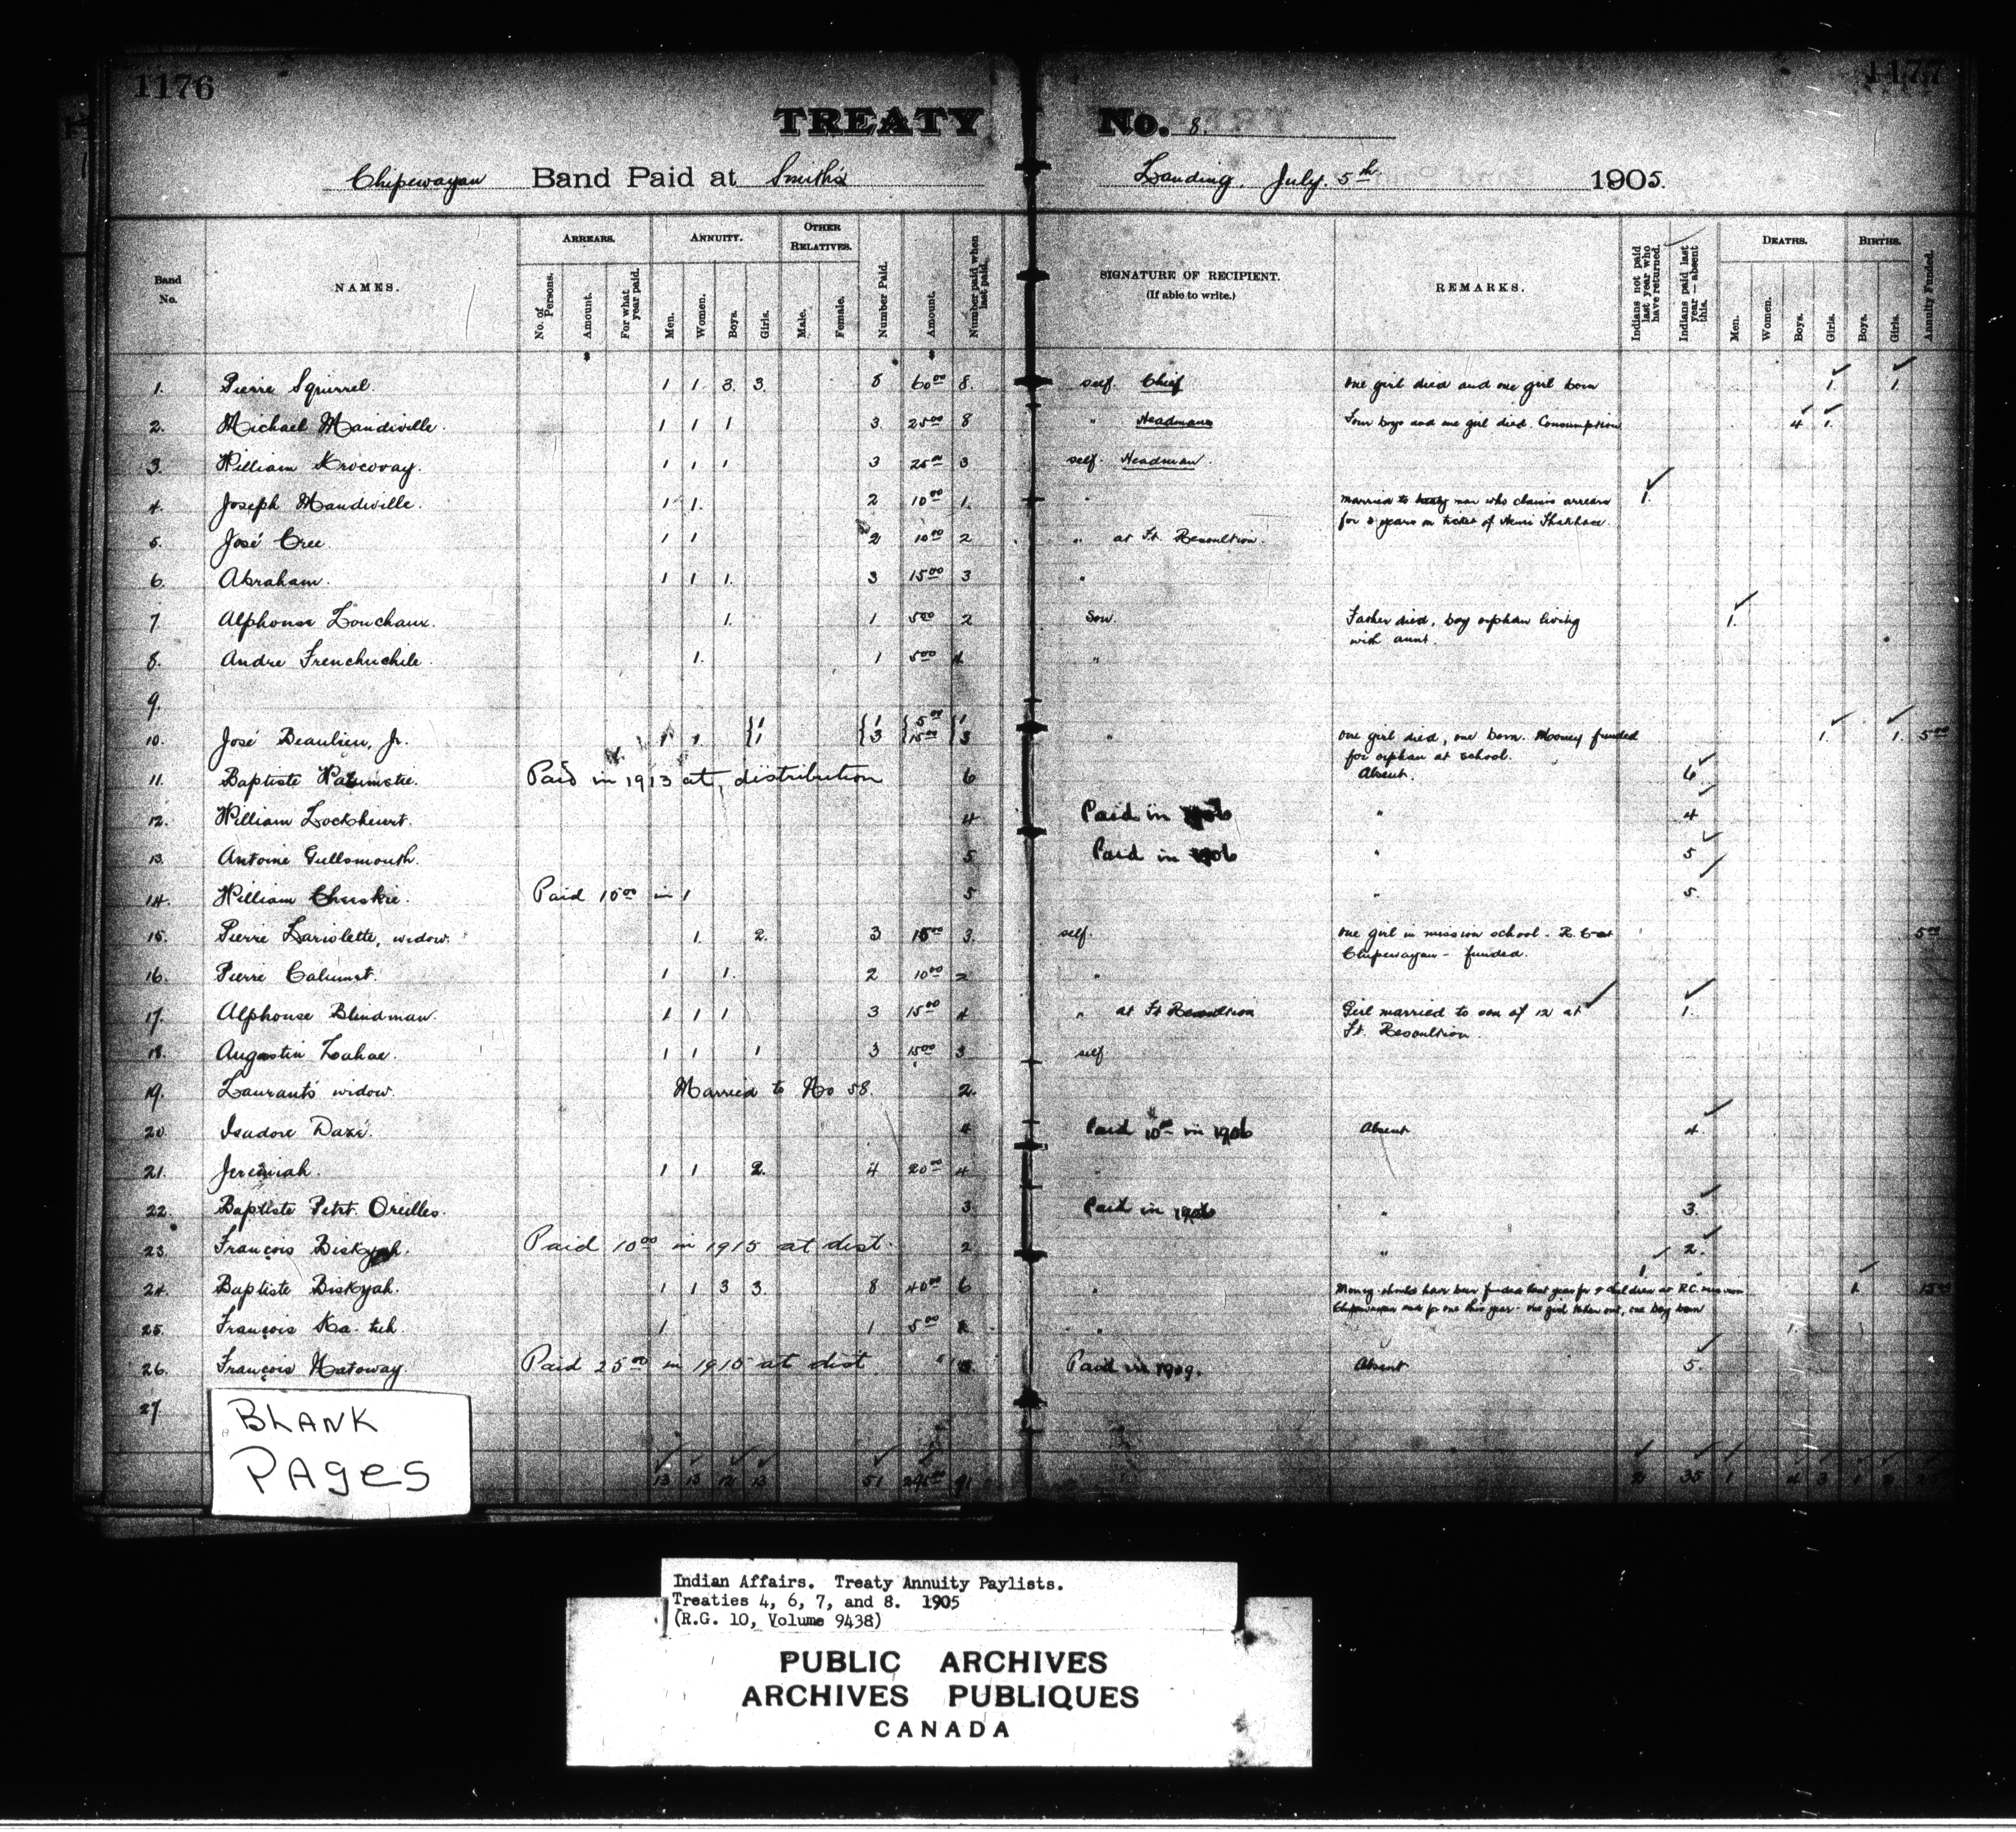 1176
1177
TREATY No. 8.
Chipewayan Band Paid at Smith's Landing, July. 5th 1905.
Band No.
NAMES.
ARREARS.
No. of Persons.
Amount.
For what year paid.
ANNUITY.
Men.
Women.
Boys.
Girls.
OTHER RELATIVES.
Male.
Female.
Number Paid.
Amount.
Number paid when last paid.
SIGNATURE OF RECIPIENT.
(If able to write.)
REMARKS.
Indians not paid last year who have returned.
Indians paid last year — absent this.
DEATHS.
Men.
Women.
Boys.
Girls.
BIRTHS.
Boys.
Girls.
Annuity Funded.
1. Pierre Squirrel. 1 1 3 3. 8 60.00 8. self. Chief one girl died and one girl born 1. 1.
2. Michael Mandiville. 1 1 1 3. 25.00 8 " Headman Four boys and one girl died. Consumption 4 1.
3. William 1 1 1 3 25.00 3 self. Headman.
4. Joseph Mandiville. 1 1. 2 10.00 1. " married to treaty man who claims arrears 1.
for 3 years on ticket of
5. José Cree. 1 1 2 10.00 2 " at Ft. Resoultion.
6. Abraham. 1 1 1. 3 15.00 3 "
7. Alphonse Louchaux. 1. 1 5.00 2 Son. Father died, boy orphan living 1.
with aunt.
8. Andre Frenchuchile. 1. 1 5.00 "
9.
1 1 5.00 1
10. José Beaulieu, Jr. 1 1. 1 3 15.00 3 " one girl died, one born. Money funded 1. 1. 5.00
for orphan at school.
11. Baptiste Paid in 1913 at, distribution 6 Absent. 6
12. William Lockheurt. 4 Paid in 1906 " 4
13. Antoine Gullsmouth. 5 Paid in 1906 " 5
14. William Paid 10.00 in 1 5 " 5.
15. Pierre Lariolette, widow. 1. 2. 3 15.00 3. self. one girl in mission school - R.C. at 5.00
Chipewayan - funded.
16. Pierre Calumet. 1 1. 2 10.00 2 "
17. Alphonse Blindman. 1 1 1 3 15.00 4 " at Ft Resoultion Girl married to son of 12 at 1.
Ft. Resoultion.
18. Augostin Lahae. 1 1 1 3 15.00 3 self
19. Laurant's widow. Married to No 58. 2.
20. Isadore Dazé. 4 Paid 10.00 in 1906 Absent 4.
21. Jeremiah. 1 1 2. 4 20.00 4 "
22. Baptiste Petit. Oreilles. 3. Paid in 1906 " 3.
23. François Biskyah. Paid 10.00 in 1915 at dist. 2 " 2.
24. Baptiste Biskyah. 1 1 3 3. 8 40.00 6 " Money should have been funded last year for children at R.C. mission 1 1. 15.00
Chipewayan and for one this year - one girl taken out, one boy born
25. François Ka-tuh. 1 1 5.00 2 "
26. François Natoway. Paid 25.00 in 1915 at dist. 5 Paid in 1909. Absent 5.
27
13 13 12 13 51 91 2 35 1 4 3 1
BLANK
PAGES
Indian Affairs. Treaty Annuity Paylists.
Treaties 4, 6, 7, and 8. 1905
(R.G. 10, Volume 9438)
PUBLIC ARCHIVES
ARCHIVES PUBLIQUES
CANADA